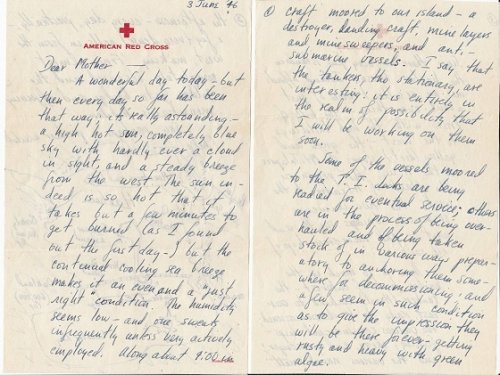 3 June 46
AMERICAN RED CROSS
Dear Mother
A wonderful day today - but
then every day so far has been
that way; it's really astounding -
a high hot sun, completely blue
sky with hardly ever a cloud
in sight, and a steady breeze
from the west. The sun in-
deed is so hot that it
takes but a few minutes to
get burned (as I found
out the first day -) but the
continual cooling sea breeze
makes it an even and a "just
right" condition. The humidity
seems low - and one sweats
infrequently unless very actively
employed. Along about 9:00
craft moored to our island - a
destroyer, landing craft, mine layers
and minesweepers, and anti-
submarine vessels. I say that
the tankers, tho stationary, are
interesting: it is entirely in
the realm of possibility that
I will be working on them
soon.
Some of the vessels moored
to the T. I. docks are being
readied for eventual service; others
are in the process of being over-
hauled and being taken
stock of in various ways prepar-
atory to anchoring them some-
where for decommissioning; and
a few seem in such condition
as to give the impression they
will be there forever - getting
rusty and heavy with green
algae.